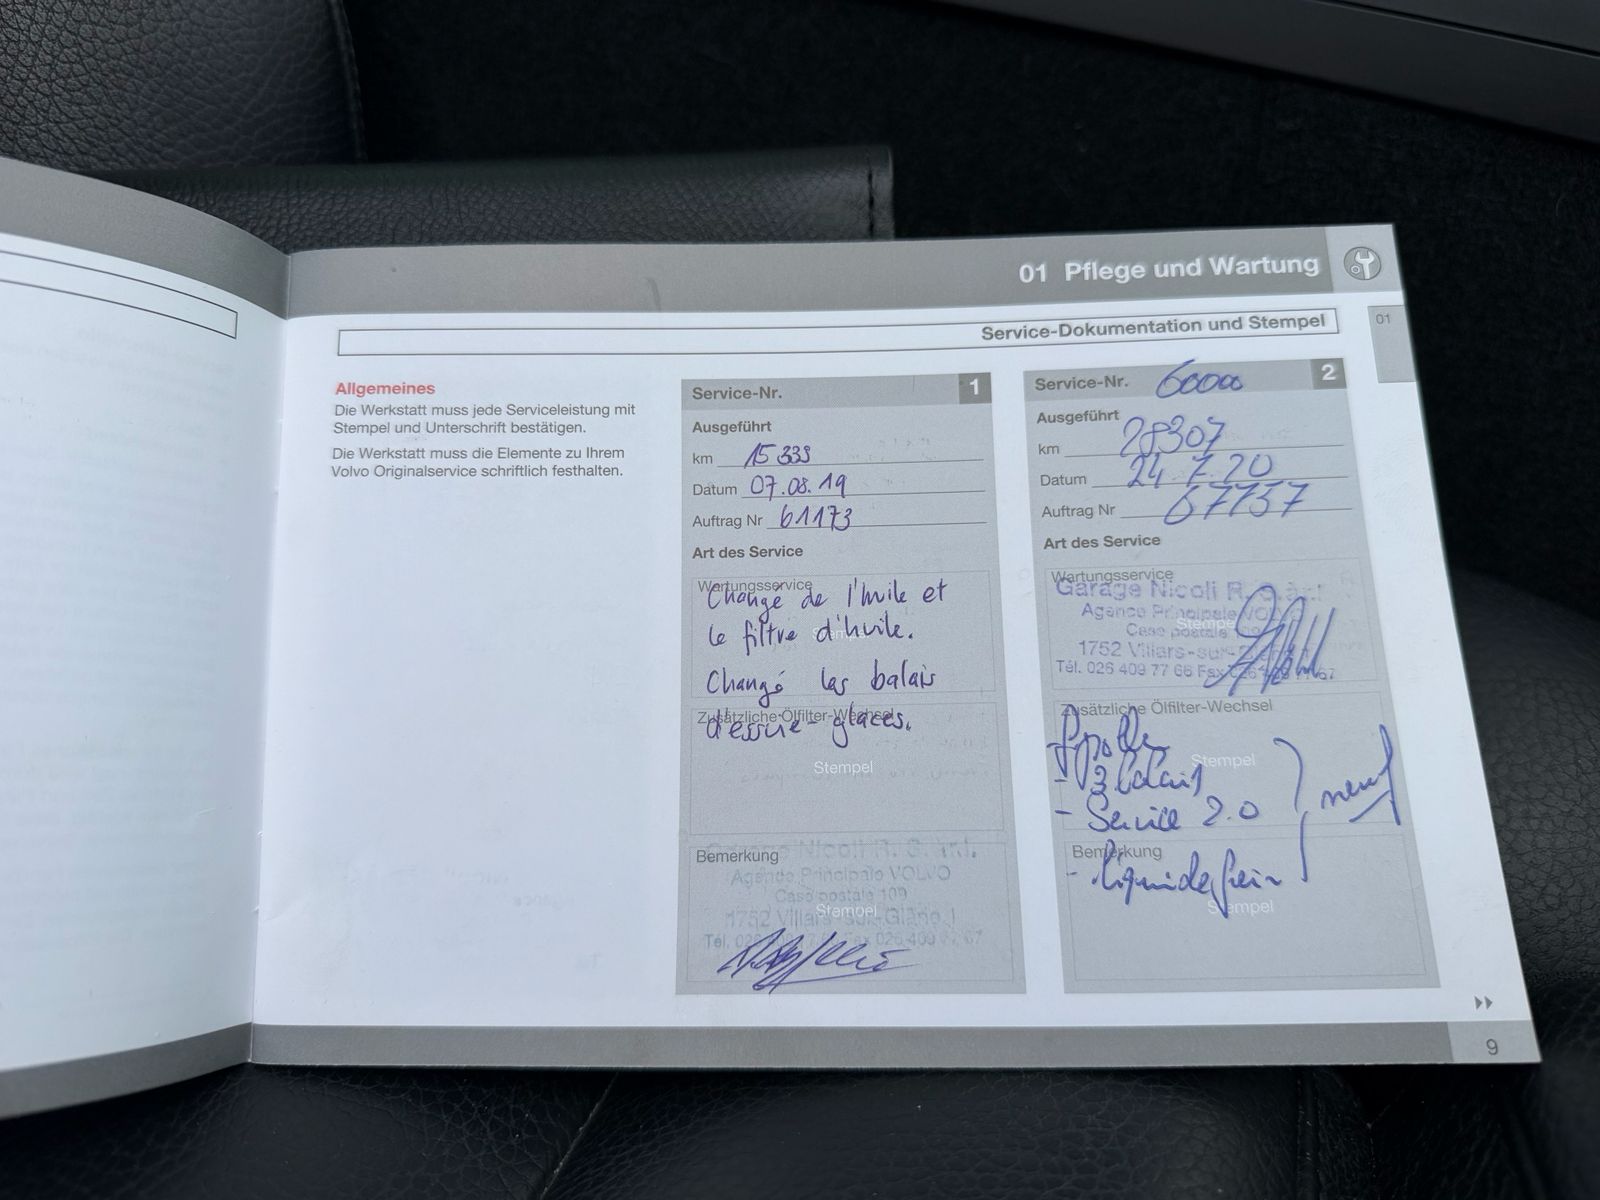 01 Pflege und Wartung
Service-Dokumentation und Stempel
01
Allgemeines
Die Werkstatt muss jede Serviceleistung mit
Stempel und Unterschrift bestätigen.
Die Werkstatt muss die Elemente zu Ihrem
Volvo Originalservice schriftlich festhalten.
Service-Nr. 1
Ausgeführt
km 15 333
Datum 07.08.19
Auftrag Nr 61173
Art des Service
Wartungsservice
Changé de l'huile et
le filtre d'huile.
Stempel
Changé les balais
Zusätzliche Ölfilter-Wechsel
d'essuie-glaces.
Stempel
Bemerkung
Garage Nicoli R. S.àr.l.
Agence Principale VOLVO
Case postale 109
Stempel
1752 Villars-sur-Glâne 1
Tél. 026 409 77 66 Fax 026 409 77 67
Service-Nr. 60000 2
Ausgeführt
km 28307
Datum 24.7.20
Auftrag Nr 67757
Art des Service
Wartungsservice
Garage Nicoli R. S.àr.l.
Agence Principale VOLVO
Stempel
Case postale 109
1752 Villars-sur-Glâne 1
Tél. 026 409 77 66 Fax 026 409 77 67
Zusätzliche Ölfilter-Wechsel
Stempel
- 3 balais
- Service 2.0
neuf
Bemerkung
- liquide frein
Stempel
9